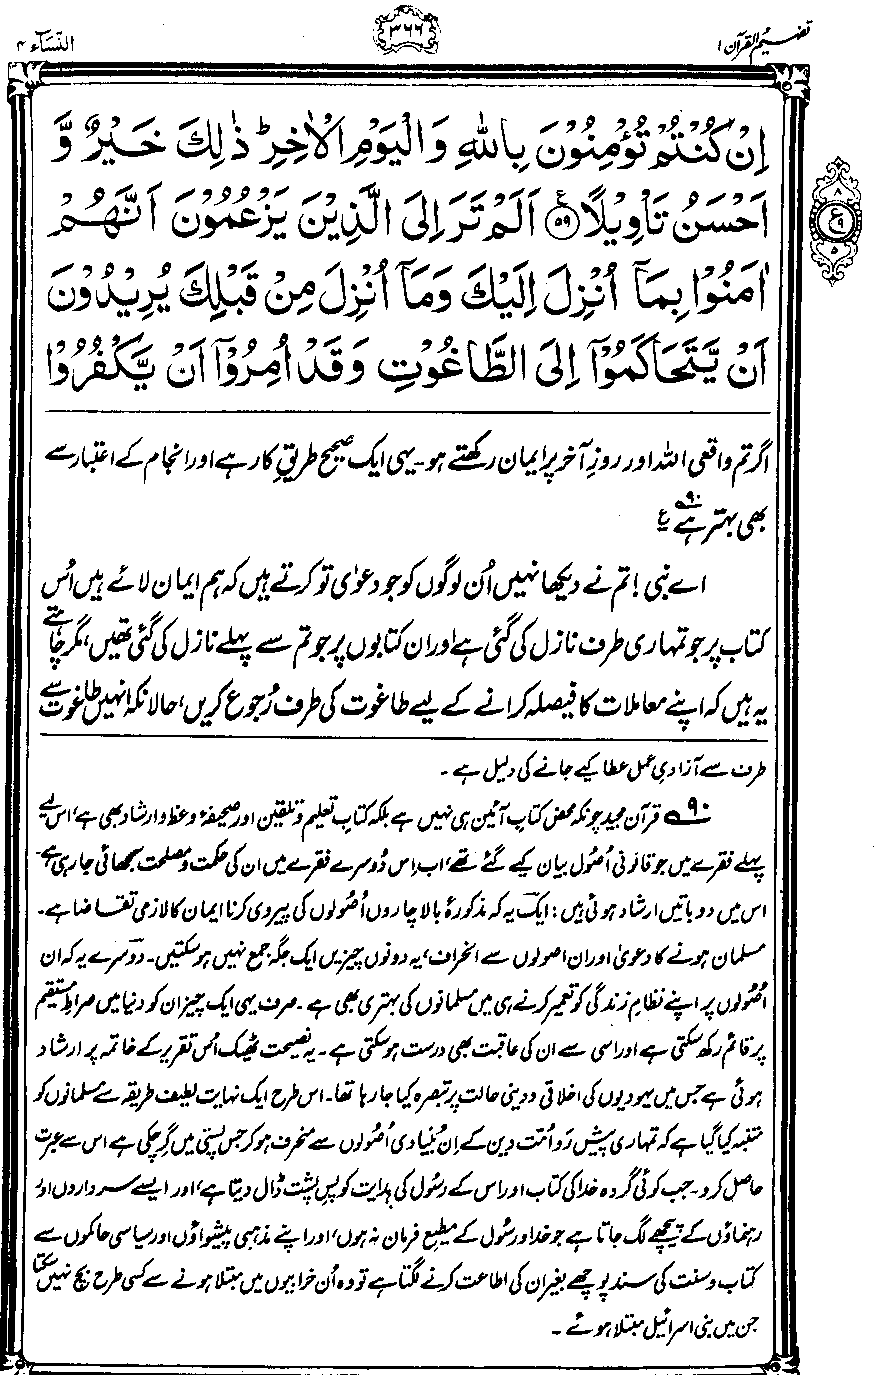 تفہیم القرآن ۱
۳۶۶
النسآء ۴
اِنْ كُنْتُمْ تُؤْمِنُوْنَ بِاللّٰهِ وَ الْيَوْمِ الْاٰخِرِ ؕ ذٰلِكَ خَيْرٌ وَّ
اَحْسَنُ تَاْوِيْلًا ﴿۵۹﴾ ع اَلَمْ تَرَ اِلَى الَّذِيْنَ يَزْعُمُوْنَ اَنَّهُمْ
اٰمَنُوْا بِمَاۤ اُنْزِلَ اِلَيْكَ وَمَاۤ اُنْزِلَ مِنْ قَبْلِكَ يُرِيْدُوْنَ
اَنْ يَّتَحَاكَمُوْۤا اِلَى الطَّاغُوْتِ وَقَدْ اُمِرُوْۤا اَنْ يَّكْفُرُوْا
۸
ع
۹
۵
اگر تم واقعی اللہ اور روزِ آخر پر ایمان رکھتے ہو۔ یہی ایک صحیح طریقِ کار ہے اور انجام کے اعتبار سے
بھی بہتر ہے ۹۰ ع
اے نبی! تم نے دیکھا نہیں اُن لوگوں کو جو دعوٰی تو کرتے ہیں کہ ہم ایمان لائے ہیں اُس
کتاب پر جو تمہاری طرف نازل کی گئی ہے اور ان کتابوں پر جو تم سے پہلے نازل کی گئی تھیں، مگر چاہتے
یہ ہیں کہ اپنے معاملات کا فیصلہ کرانے کے لیے طاغوت کی طرف رُجوع کریں، حالانکہ انہیں طاغوت سے
طرف سے آزادیِ عمل عطا کیے جانے کی دلیل ہے۔
۹۰ قرآن مجید چونکہ محض کتابِ آئین ہی نہیں ہے بلکہ کتابِ تعلیم و تلقین اور صحیفۂ وعظ و ارشاد بھی ہے، اس لیے
پہلے فقرے میں جو قانونی اُصُول بیان کیے گئے تھے، اب اِس دُوسرے فقرے میں ان کی حکمت و مصلحت سمجھائی جا رہی ہے۔
اس میں دو باتیں ارشاد ہوئی ہیں: ایک یہ کہ مذکورۂ بالا چاروں اُصُولوں کی پیروی کرنا ایمان کا لازمی تقاضا ہے۔
مسلمان ہونے کا دعویٰ اور ان اصولوں سے انحراف، یہ دونوں چیزیں ایک جگہ جمع نہیں ہو سکتیں۔ دوسرے یہ کہ ان
اُصُولوں پر اپنے نظامِ زندگی کو تعمیر کرنے ہی میں مسلمانوں کی بہتری بھی ہے۔ صرف یہی ایک چیز ان کو دنیا میں صراطِ مستقیم
پر قائم رکھ سکتی ہے اور اسی سے ان کی عاقبت بھی درست ہو سکتی ہے۔ یہ نصیحت ٹھیک اُس تقریر کے خاتمہ پر ارشاد
ہوئی ہے جس میں یہودیوں کی اخلاقی و دینی حالت پر تبصرہ کیا جا رہا تھا۔ اس طرح ایک نہایت لطیف طریقہ سے مسلمانوں کو
متنبہ کیا گیا ہے کہ تمہاری پیش رَو اُمت دین کے اِن بُنیادی اُصُولوں سے منحرف ہو کر جس پستی میں گر چکی ہے اس سے عبرت
حاصل کرو۔ جب کوئی گروہ خدا کی کتاب اور اس کے رسُول کی ہدایت کو پسِ پشت ڈال دیتا ہے، اور ایسے سرداروں اور
رہنماؤں کے پیچھے لگ جاتا ہے جو خدا و رسُول کے مطیع فرمان نہ ہوں، اور اپنے مذہبی پیشواؤں اور سیاسی حاکموں سے
کتاب و سنت کی سند پوچھے بغیر ان کی اطاعت کرنے لگتا ہے تو وہ اُن خرابیوں میں مبتلا ہونے سے کسی طرح بچ نہیں سکتا
جن میں بنی اسرائیل مبتلا ہوئے۔